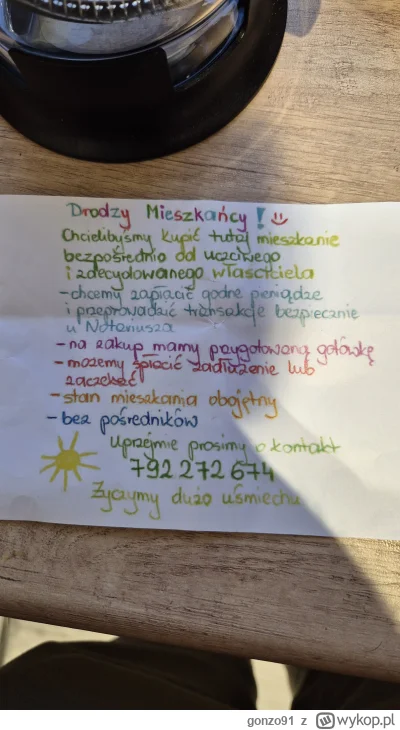 Drodzy Mieszkańcy !
Chcielibyśmy kupić tutaj mieszkanie
bezpośrednio od uczciwego
i zdecydowanego właściciela
- chcemy zapłacić godne pieniądze
i przeprowadzić transakcję bezpiecznie
u Notariusza
- na zakup mamy przygotowaną gotówkę
- możemy spłacić zadłużenie lub
zaczekać
- stan mieszkania obojętny
- bez pośredników
Uprzejmie prosimy o kontakt
792 272 674
Życzymy dużo uśmiechu
gonzo91 z wykop.pl